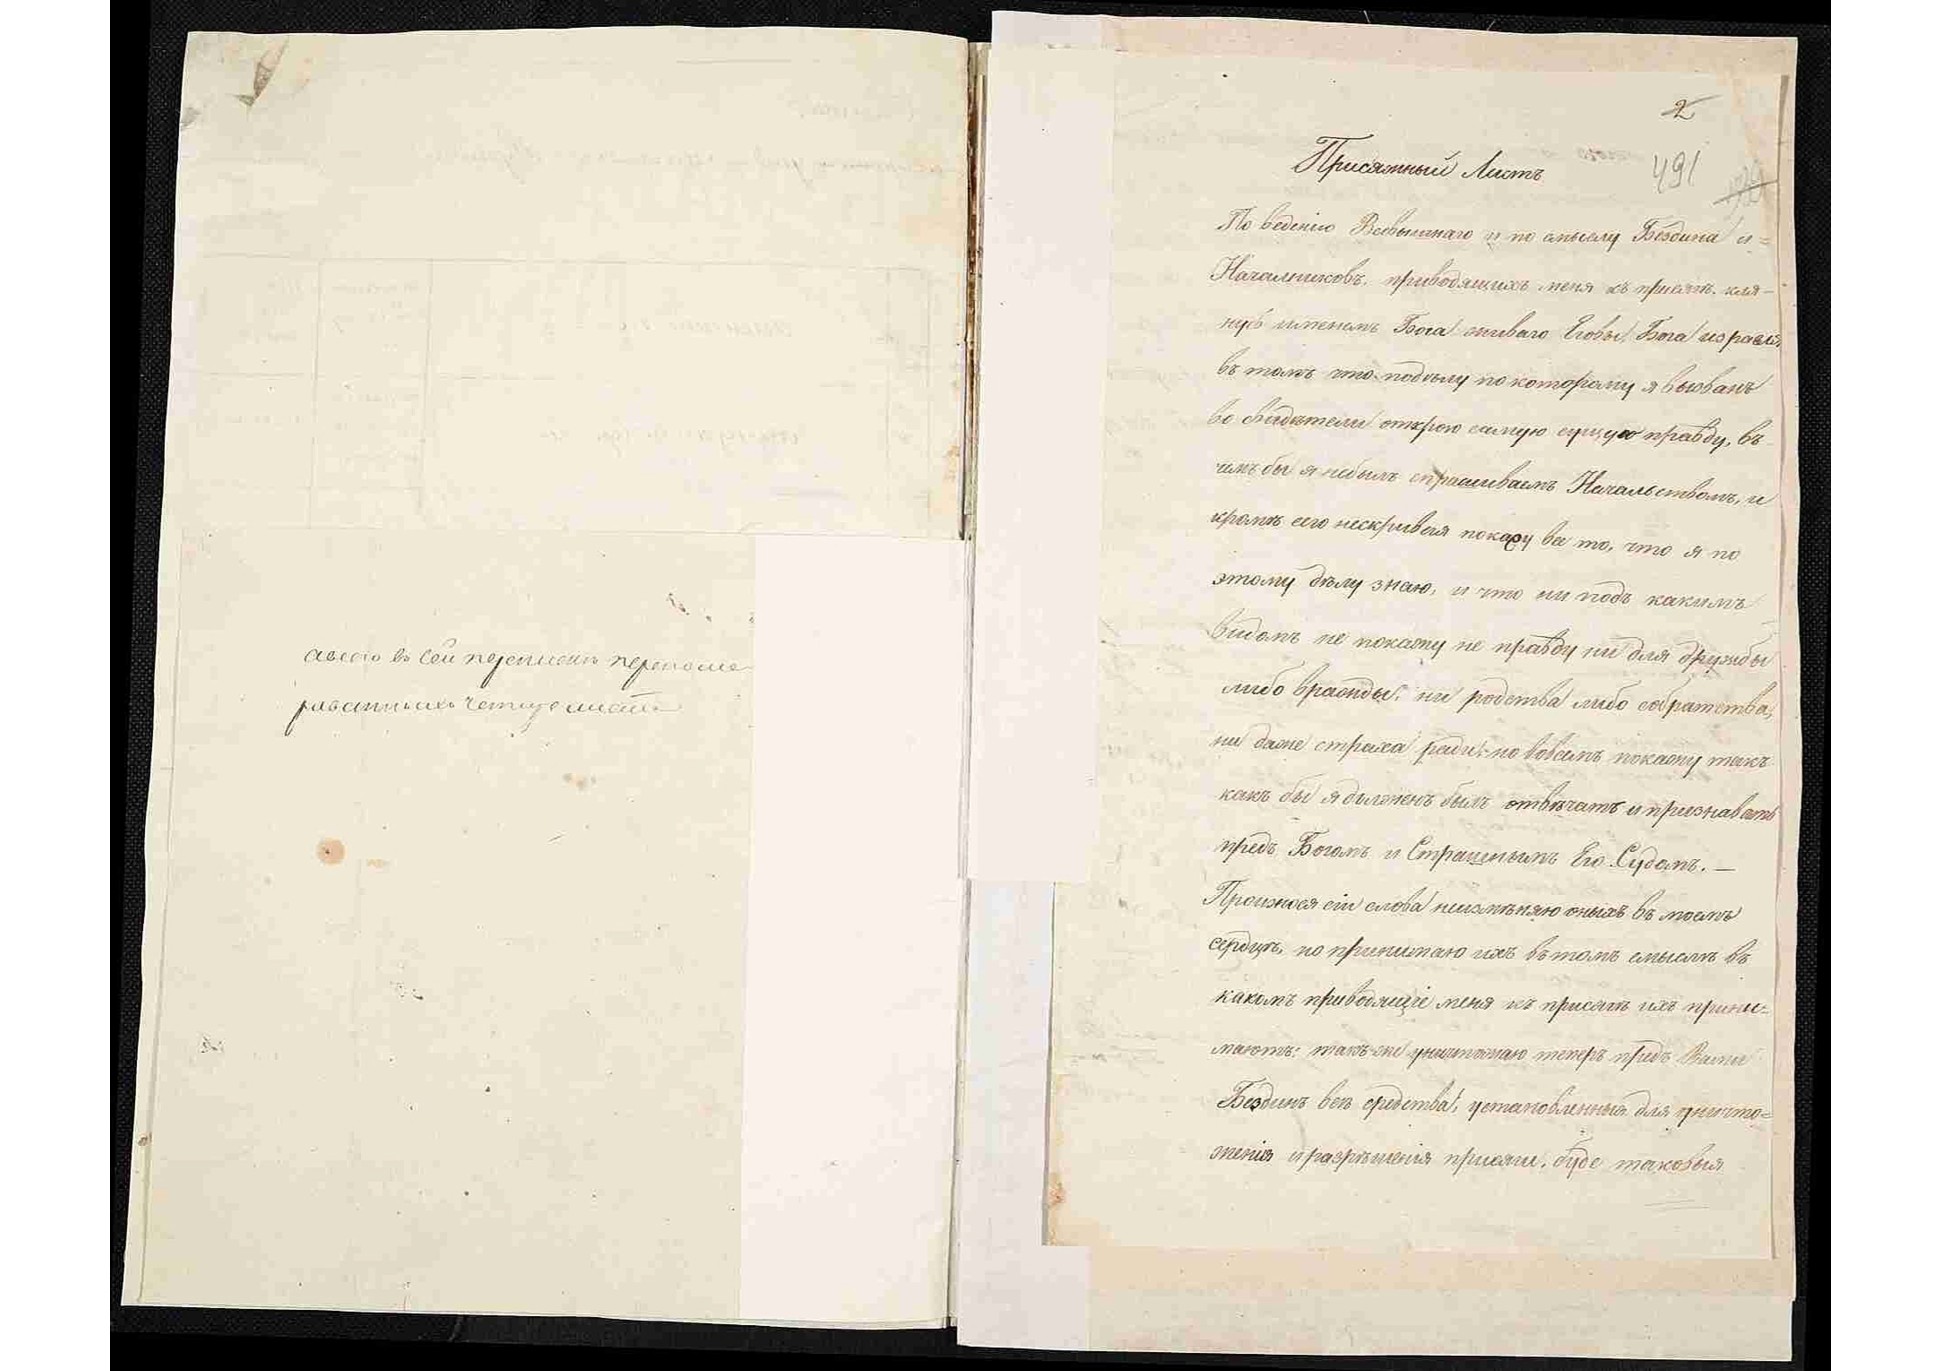 авсего въ сей перепискѣ перенуме
рованныхъ четыре листа
2
491
Присяжный Листъ
По веденію Всевышнаго и по смыслу Бездина и=
Началниковъ, приводящихъ меня къ присягѣ, кля-
нусь именемъ Бога живаго Еговы, Бога израеля,
въ томъ что подѣлу по которому я вызванъ
во свидѣтели открою самую сущую правду, въ
чемъ бы я небылъ спрашиваемъ Начальствомъ, и
кромѣ сего нескрывая покажу все то, что я по
этому дѣлу знаю, и что ни подъ какимъ
видомъ не покажу не правду ни для дружбы
либо вражды, ни родства либо собратства,
ни даже страха ради, но вовсемъ покажу такъ
какъ бы я долженъ былъ отвѣчать и признавать
предъ Богомъ и Страшнымъ Его Судомъ. —
Произнося сіи слова неизмѣняю оныхъ въ моемъ
сердцѣ, но принимаю ихъ въ томъ смыслѣ въ
какомъ приводящіе меня къ присягѣ ихъ прини=
маютъ: такъ-же уничтожаю теперъ предъ Вами
Бездинъ всѣ средства, установленныя для уничто=
женія и разрѣшенія присяги, буде таковыя